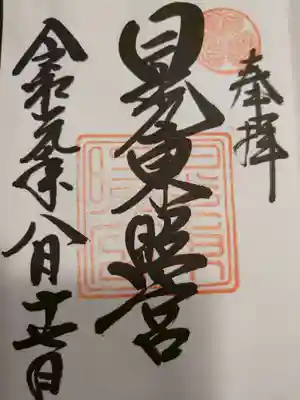 奉拝
日光東照宮
令和元年八月十七日